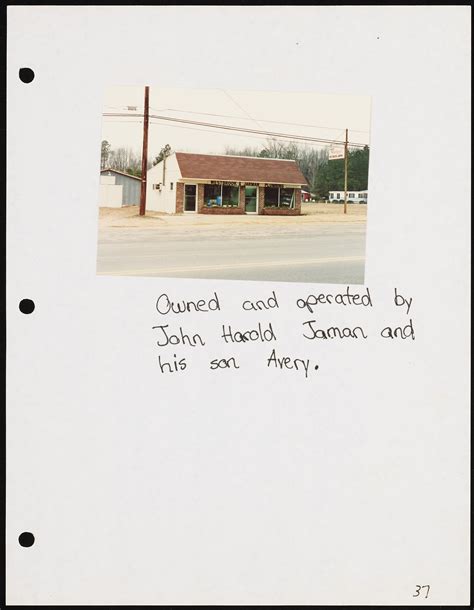 Owned and operated by
John Harold Jaman and
his son Avery.
37